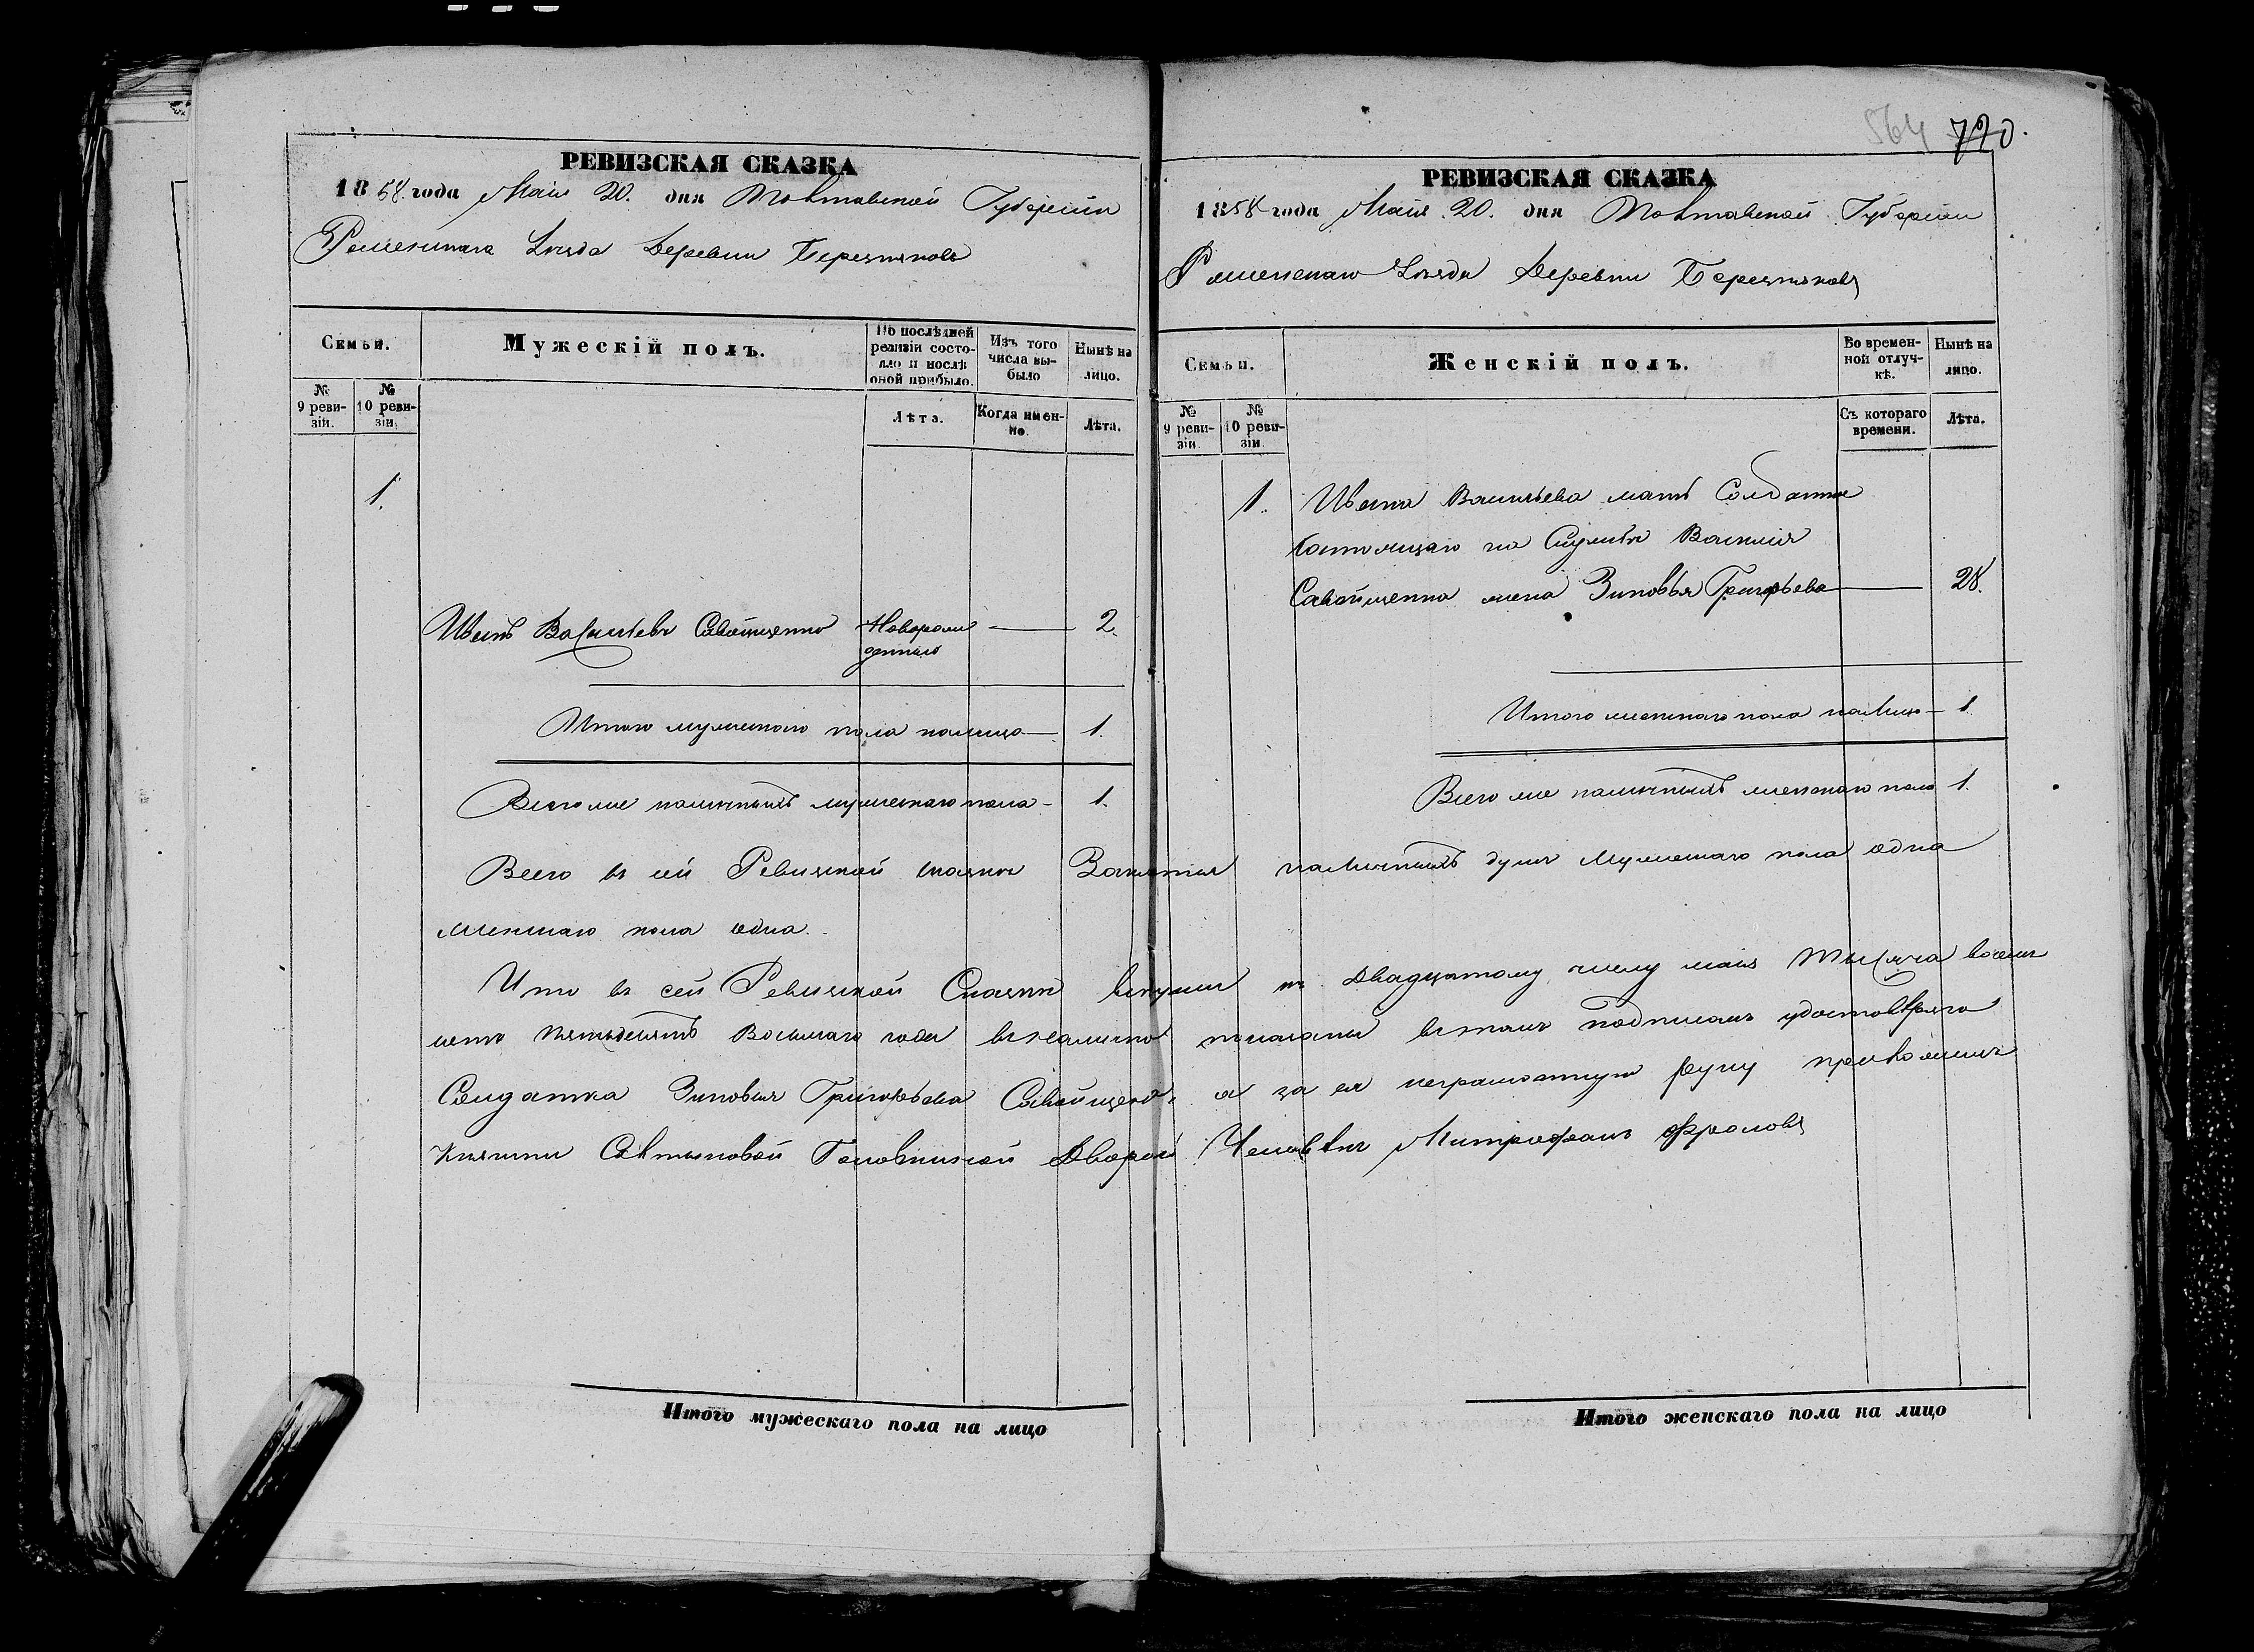 564 720.
РЕВИЗСКАЯ СКАЗКА
1858 года Маія 20. дня Полтавской Губерніи
Роменскаго Уѣзда Деревни Березняковъ
Семьи.
Мужескій полъ.
По послѣдней ревизіи состояло и послѣ оной прибыло.
Изъ того числа выбыло
Нынѣ на лицо.
№ 9 ревизіи.
№ 10 ревизіи.
Лѣта.
Когда именно.
Лѣта.
1.
Иванъ Васильевъ Новорожденный — 2.
Итого мужескаго пола налицо — 1.
Всего же наличныхъ мужескаго пола - 1.
РЕВИЗСКАЯ СКАЗКА
1858 года Маія 20. дня Полтавской Губерніи
Роменскаго Уѣзда Деревни Березняковъ
Семьи.
Женскій полъ.
Во временной отлучкѣ.
Нынѣ на лицо.
№ 9 ревизіи.
№ 10 ревизіи.
Съ котораго времени.
Лѣта.
1. Ивана Васильева мать Солдата
состоящаго на Службѣ Василія
жена Зиновья Григорьева — 28.
Итого женскаго пола налицо — 1.
Всего же наличныхъ женскаго пола 1.
Всего въ сей Ревизской сказкѣ наличныхъ душъ Мужескаго пола одна
женскаго пола одна.
Что въ сей Ревизской Сказкѣ къ Двадцатому числу маія Тысяча восемь
сотъ пятьдесятъ Восьмаго года показаны въ томъ подписомъ
Солдатка Зиновья Григорьева а за ея неграмотную руку
Княгини Головкиной Дворовой Человѣкъ Митрофанъ Фроловъ
Итого мужескаго пола на лицо
Итого женскаго пола на лицо